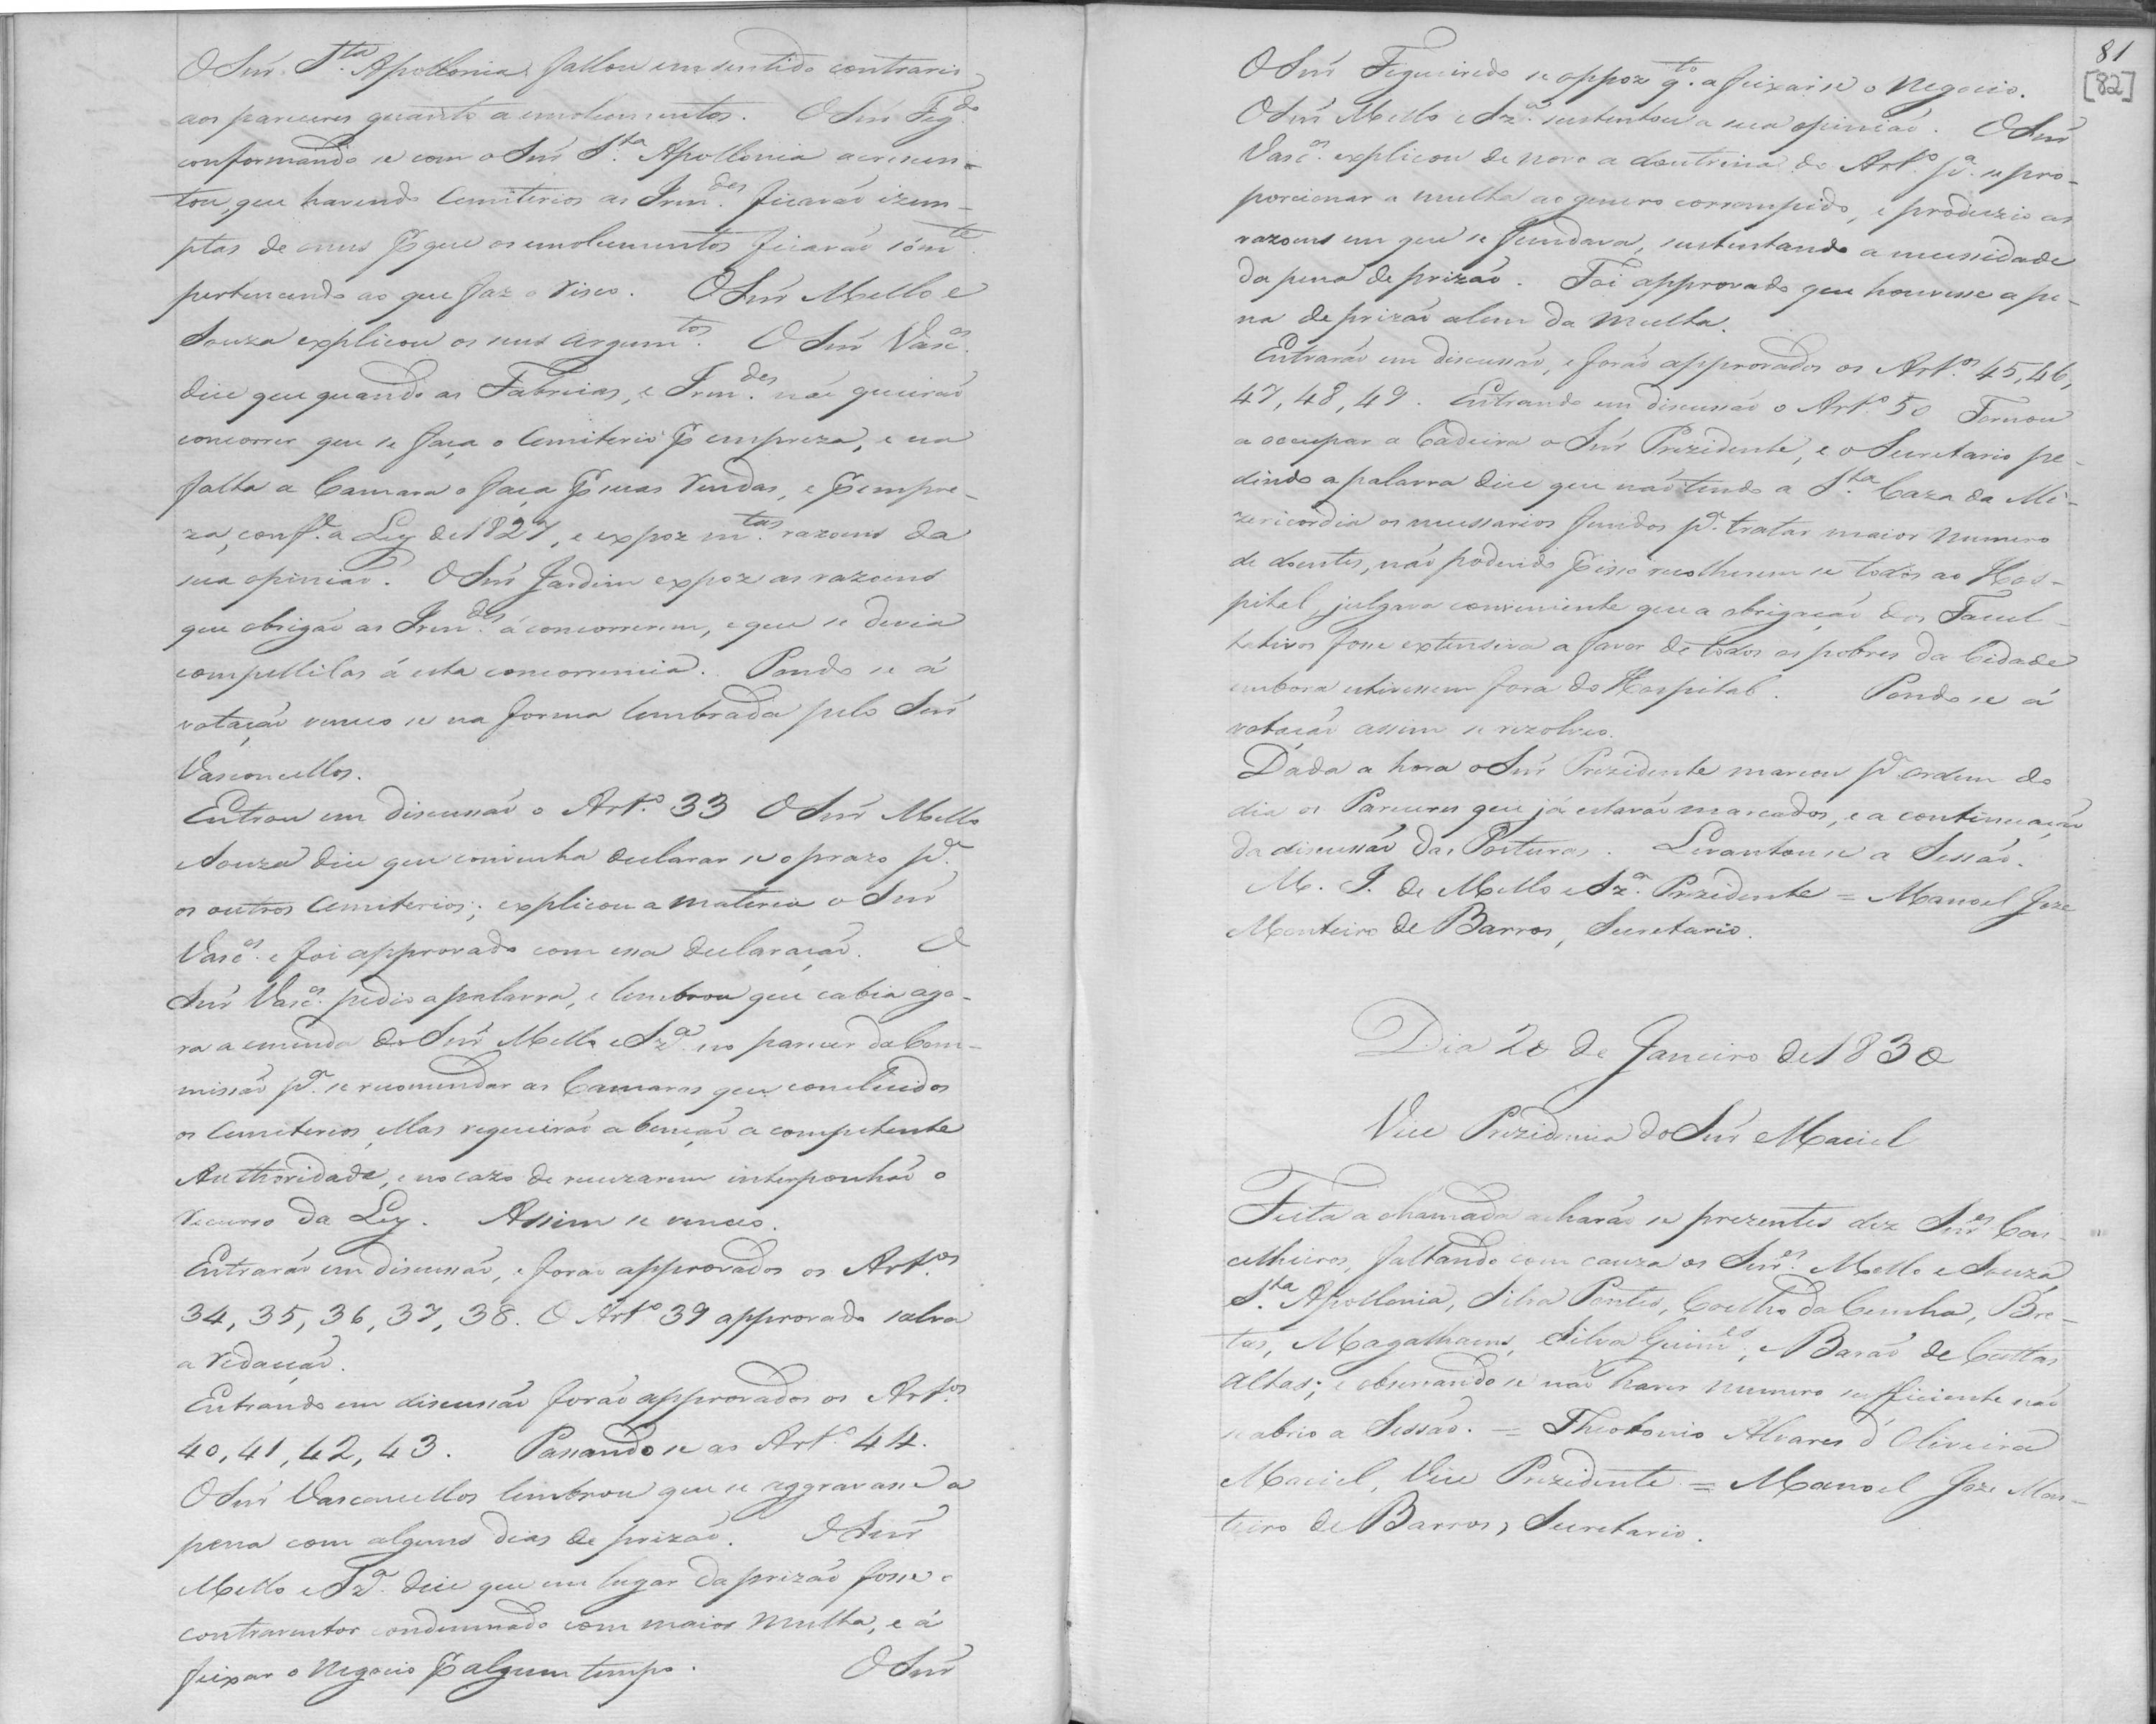 O Snr. S.ta Apollonia fallou em sentido contrario
aos pareceres quanto a emolumentos. O Snr Fig.do
conformando se com o Snr S.ta Apollonia acrescen-
tou, que havendo Cemiterios as Irm.des ficavaõ izem-
ptas de onus p que os emolumentos ficavaõ sóm.te
pertencendo ao que faz o risco. O Snr Mello e
Souza explicou os seus argum.tos O Snr Vasc.os
dice que quando as Fabricas, e Irm.des naõ queiraõ
concorrer que se faça o Cemiterio p empreza, e na
falta a Camara o faça p suas rendas, e p empre-
za, conf.e a Ley de 1827, e expoz m.tas razoens da
sua opiniaõ. O Snr Jardim expoz as razoens
que obrigaõ as Irm.des á concorrerem, e que se devia
compellilas á esta concorrencia. Pondo se á
votaçaõ venceo se na forma lembrada pelo Snr
Vasconcellos.
Entrou em discussaõ o Art.o 33 O Snr Mello
e Souza dice que convinha declarar se o prazo p.a
os outros Cemiterios; explicou a materia o Snr
Vasc.os e foi approvado com essa declaraçaõ. O
Snr Vasc.os pedio a palavra, e lembrou que cabia ago-
ra a emenda do Snr Mello e Sz.a no parecer da Com-
missaõ p.a se recomendar as Camaras que concluidos
os Cemeterios, ellas requeiraõ a bençaõ a competente
Authoridade, e no cazo de recuzarem interponhaõ o
recurso da Ley. Assim se venceo.
Entraraõ em discussaõ, e foraõ approvados os Art.os
34, 35, 36, 37, 38. O Art.o 39 approvado salva
a redacçaõ.
Entrando em discussaõ foraõ approvados os Art.os
40, 41, 42, 43. Passando se ao Art.o 44.
O Snr Vasconcellos lembrou que se aggravasse a
pena com alguns dias de prizaõ. O Snr
Mello e Sz.a dice que em lugar da prizaõ fosse o
contraventor condemnado com maior multa, e á
feixar o Negocio p algum tempo. O Snr
81
[82]
O Snr Figueiredo se oppoz q.to a feixar se o Negocio.
O Snr Mello e Sz.a sustentou a sua opiniaõ. O Snr
Vasc.os explicou de novo a doutrina do Art.o p.a se pro-
porcionar a multa ao genero corrompido, e produzio as
razoens em que se fundava, sustentando a necessidade
da pena de prizaõ. Foi approvado que houvesse a pe-
na de prizaõ alem da multa.
Entraraõ em discussaõ, e foraõ approvados os Art.os 45, 46,
47, 48, 49. Entrando em discussaõ o Art.o 50 Tornou
a occupar a Cadeira o Snr Prezidente, e o Secretario pe-
dindo a palavra dice que naõ tendo a S.ta Caza da Mi-
zericordia os necessarios fundos p.a tratar maior numero
de doentes, naõ podendo p isso recolherem se todos ao Hos-
pital, julgava conveniente que a obrigaçaõ dos Facul-
tativos fosse extensiva a favor de todos os pobres da Cidade
embora estivessem fora do Hospital. Pondo se á
votaçaõ assim se rezolveo.
Dada a hora o Snr Prezidente marcou p.a ordem do
dia os Pareceres que já estavaõ marcados, e a continuaçaõ
da discussaõ das Posturas. Levantou se a Sessaõ.
M. I. de Mello e Sz.a Prezidente = Manoel Joze
Monteiro de Barros, Secretario.
Dia 20 de Janeiro de 1830
Vice Prezidencia do Snr Maciel
Feita a chamada acharaõ se prezentes dez Snr.es Con-
celheiros, faltando com cauza os Snr.es Mello e Souza,
S.ta Apollonia, Silva Pontes, Coelho da Cunha, Bre-
tas, Magalhaens, Silva Guim.es, e Baraõ de Cattas
Altas; e observando se naõ haver numero sufficiente naõ
se abrio a Sessaõ. = Theotonio Alvares d'Oliveira
Maciel, Vice Prezidente = Manoel Joze Mon-
teiro de Barros, Secretario.